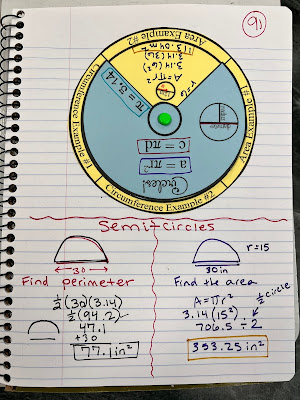 Area Example #2
113.04 m²
3.14(36)
3.14(6²)
A = πr²
r=6
Circumference Example #1
π = 3.14
Area Example #1
c = πd
a = πr²
Circles!
Circumference Example #2
Semi Circles
30
Find perimeter
½(30)(3.14)
½(94.2)
47.1
+30
77.1 in²
r=15
30in
Find the area
A=πr²
½ circle
3.14(15²)
706.5 ÷ 2
353.25 in²